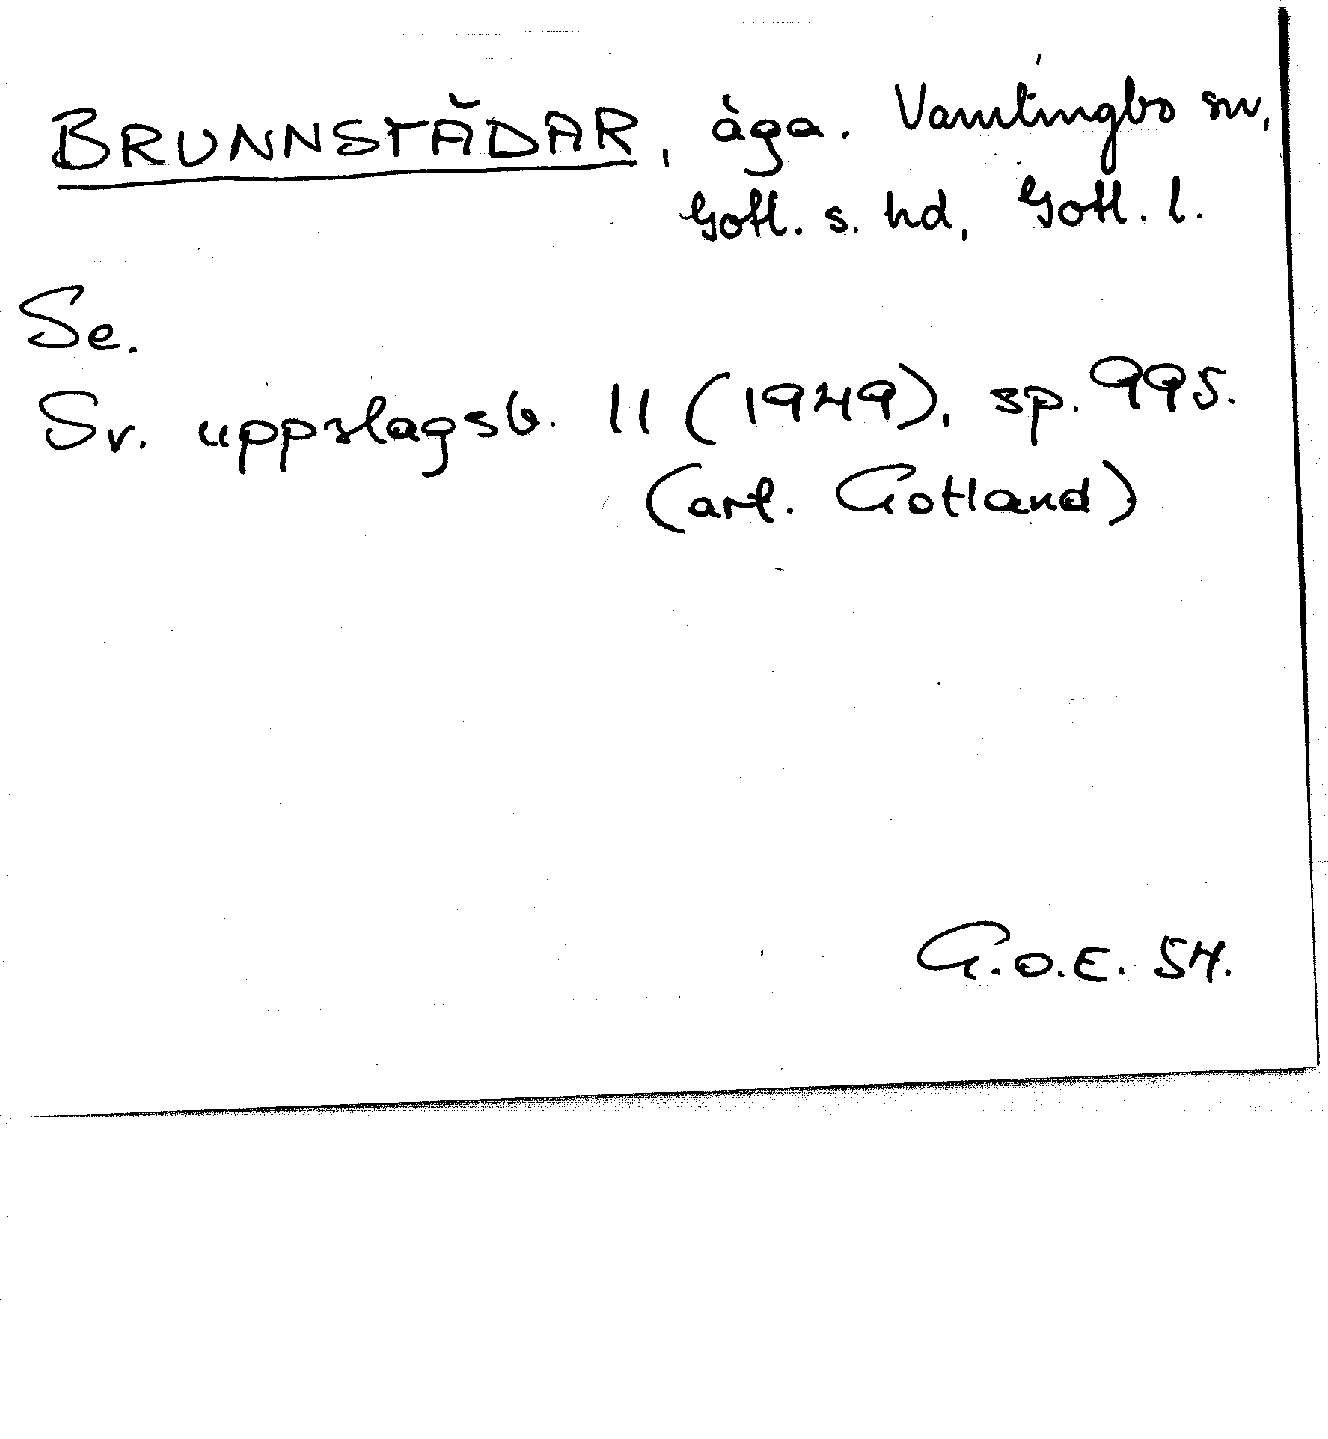 BRUNNSTÄDAR, åga. Vamlingbo sn,
Gotl. s. hd, Gotl. l.
Se.
Sv. uppslagsb. 11 (1949), sp. 995.
(art. Gotland)
G.O.E. 54.